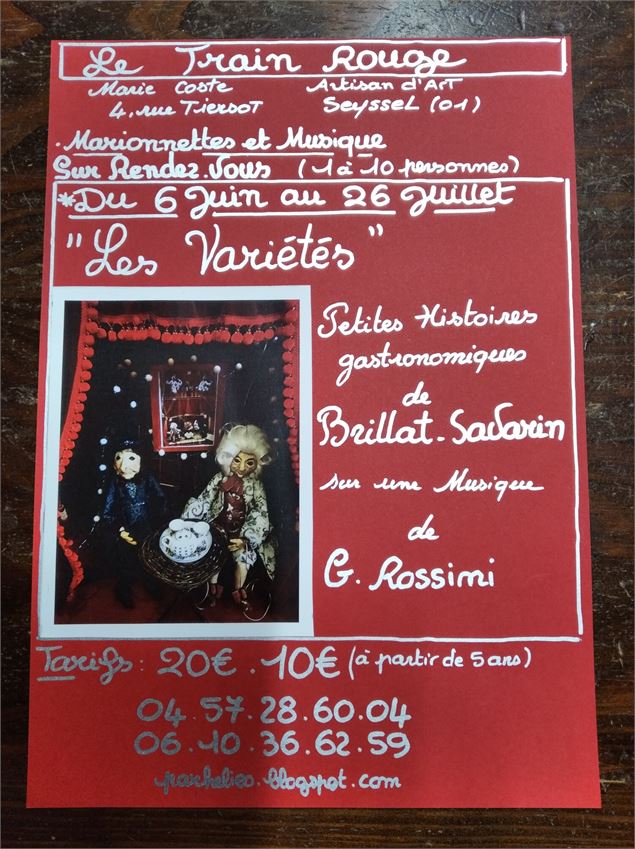 Le Train Rouge
Marie Coste Artisan d'Art
4, rue Tiersot Seyssel (01)
. Marionnettes et Musique
Sur Rendez-Vous (1 à 10 personnes)
*Du 6 Juin au 26 Juillet
"Les Variétés"
Petites Histoires
gastronomiques
de
Brillat-Savarin
sur une Musique
de
G. Rossini
Tarifs : 20€ . 10€ (à partir de 5 ans)
04.57.28.60.04
06.10.36.62.59
parhelieo.blogspot.com